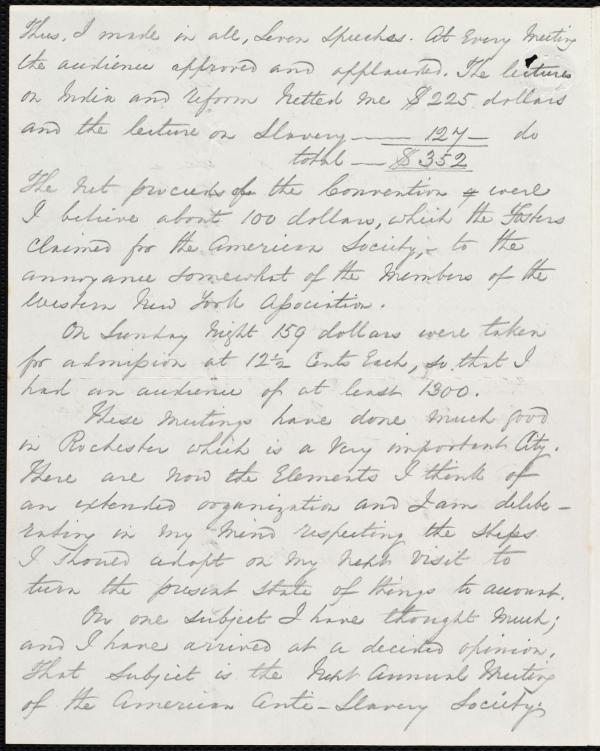 Thus, I made in all, Seven Speeches. At Every Meeting
the audience approved and applauded. The lectures
on India and reform Netted me $225 dollars
and the lecture on Slavery —— 127 — do
total — $352
The Net proceeds of the Convention were
I believe about 100 dollars, which the Fosters
claimed for the American Society, – to the
annoyance somewhat of the Members of the
Western New York Association.
On Sunday Night 159 dollars were taken
for admission at 12½ Cents Each, so that I
had an audience of at least 1300.
These Meetings have done much good
in Rochester which is a very important City.
There are now the Elements I think of
an extended organization and I am delibe-
rating in my mind respecting the steps
I should adopt on my next visit to
turn the present state of things to account.
On one subject I have thought much;
and I have arrived at a decided opinion.
That subject is the Next Annual Meeting
of the American Anti-Slavery Society.